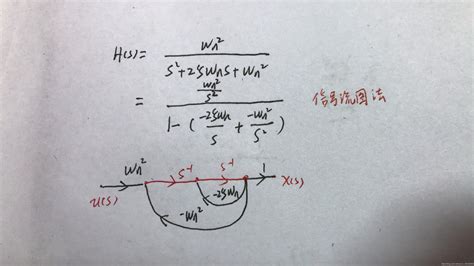 H(s) = Wn² / S²+2ζWnS+Wn²
= Wn²/S² / 1-(-2ζWn/S + -Wn²/S²)
信号流图法
Wn² S⁻¹ S⁻¹ 1
U(s) -2ζWn X(s)
-Wn²